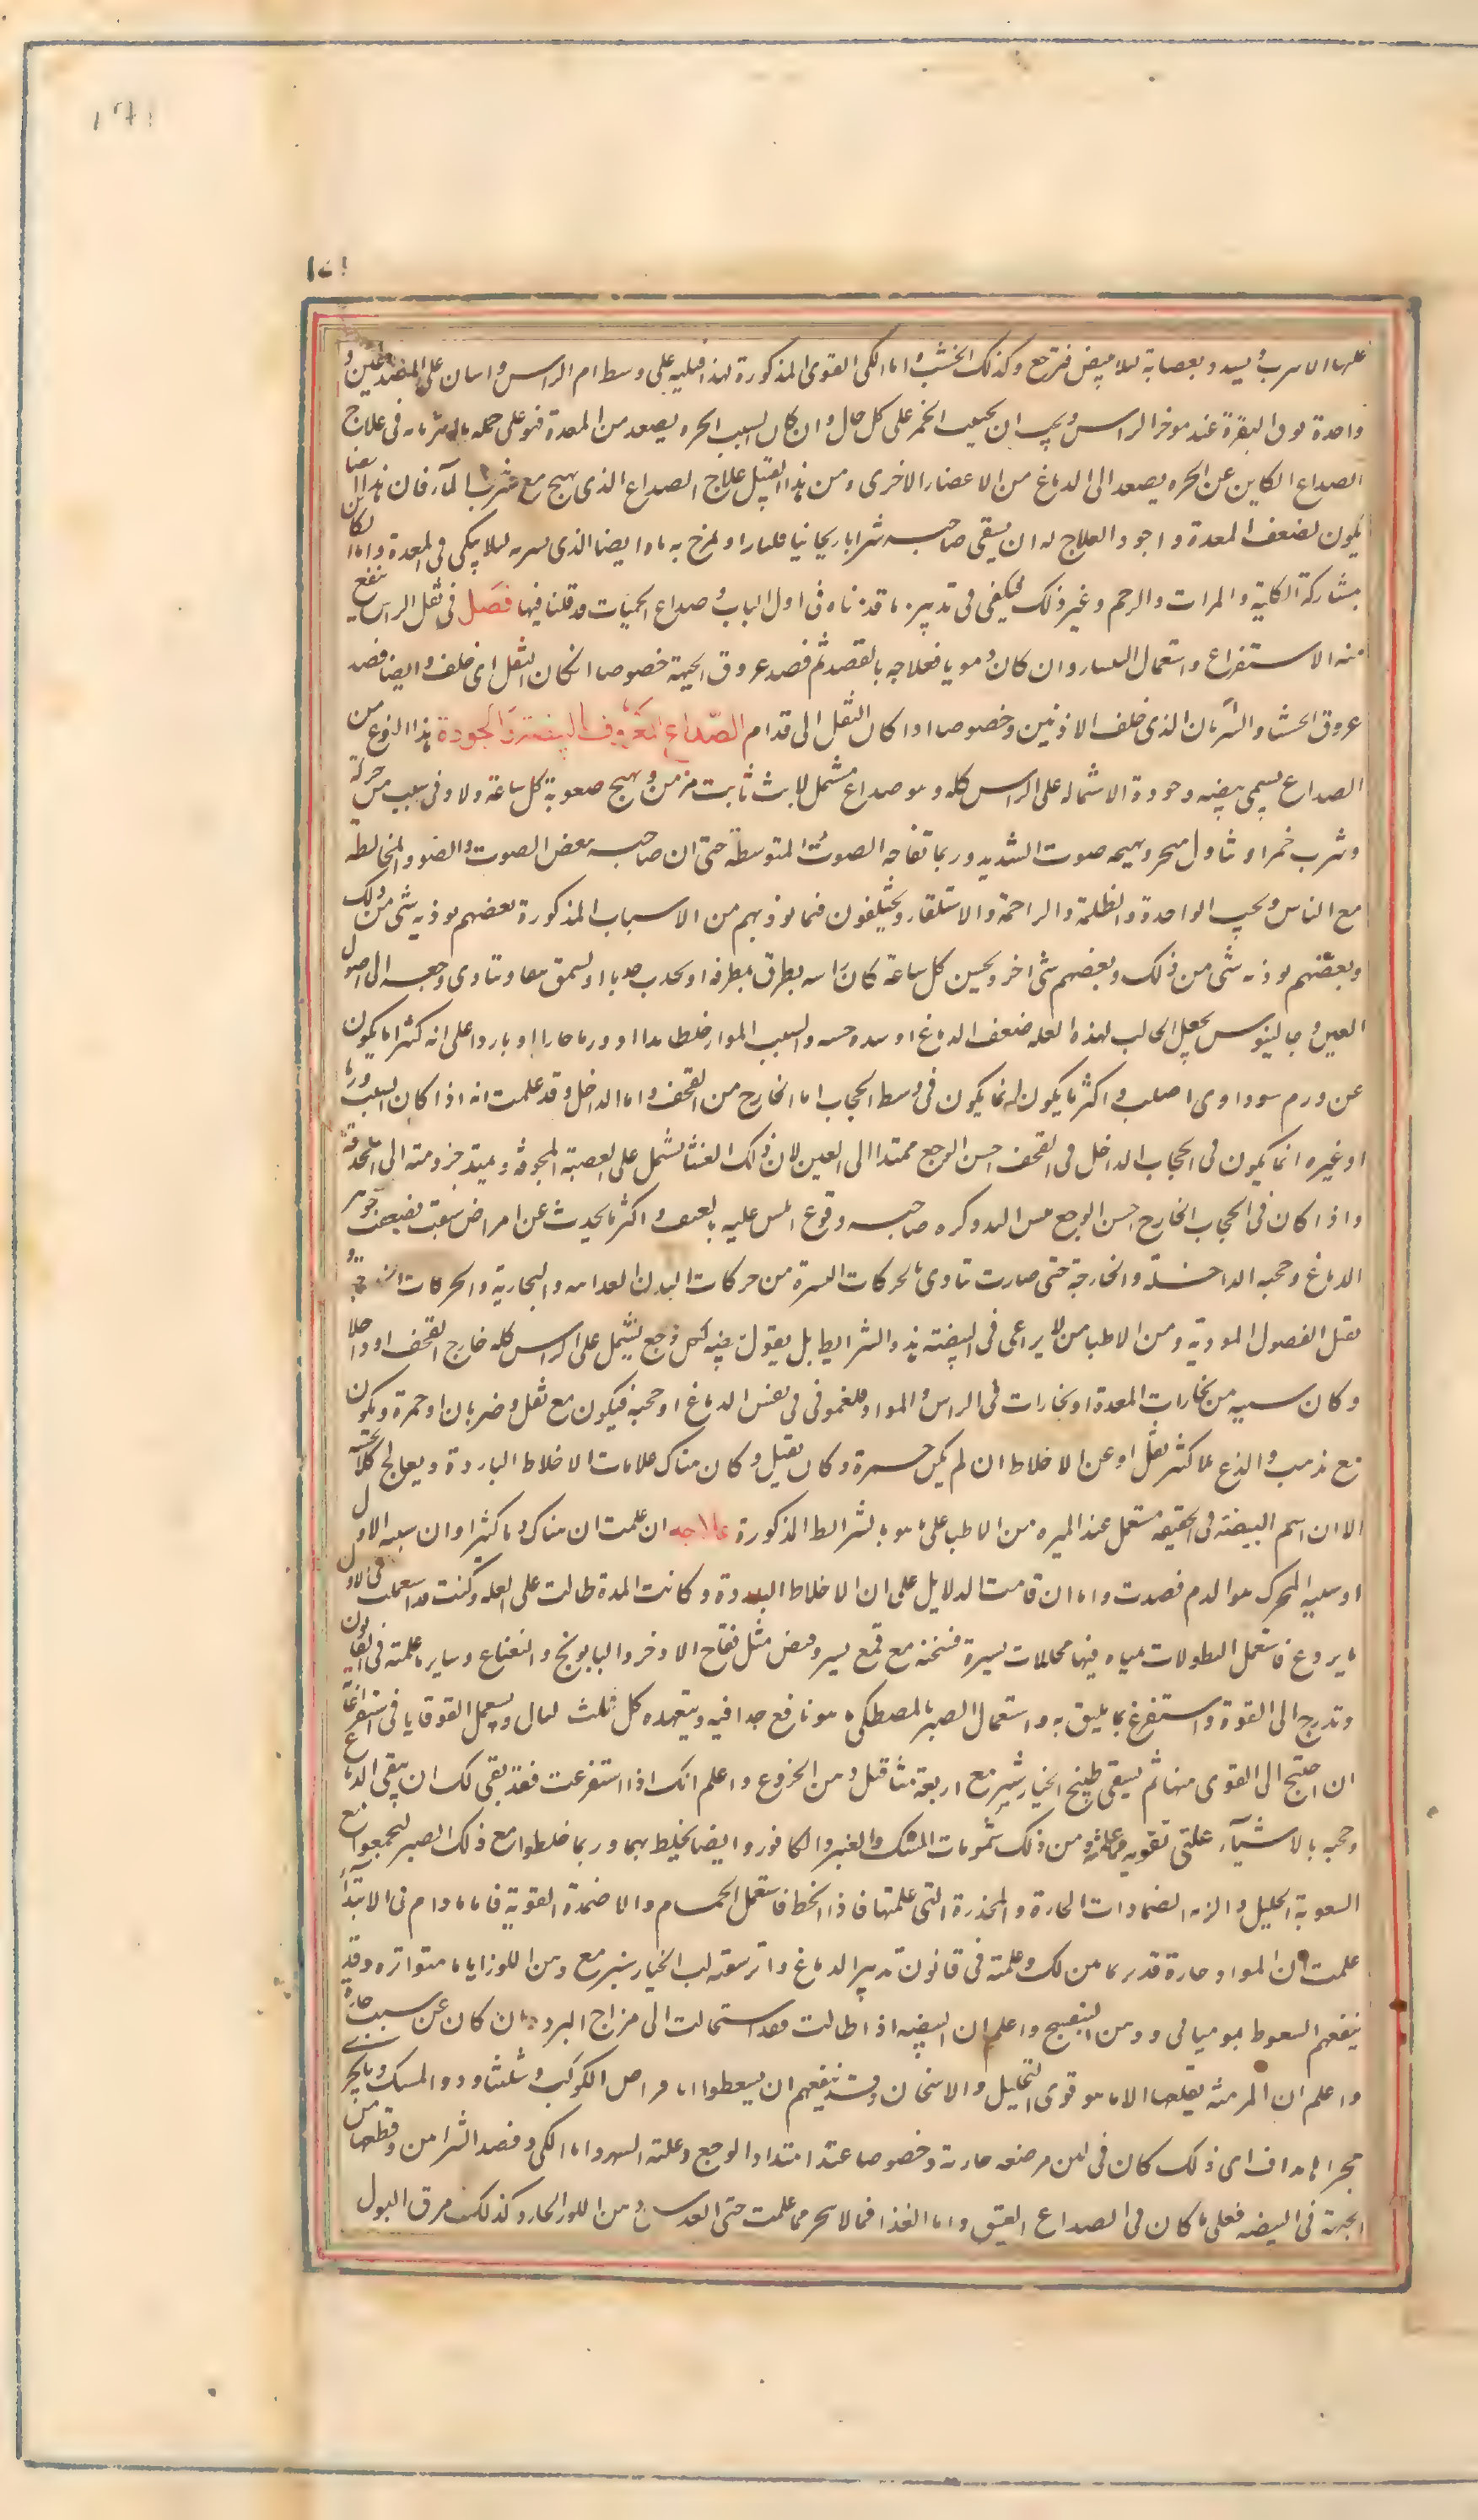 عليها الاسرب ويسد وبعصابة ليلا يبيض فترجع وكذلك الخشب واما الكى القوى المذكورة لهذا فليه على وسط ام الراس واسان على الصدغين و
واحدة فوق النقرة عند موخر الراس ويجب ان يجتنب الخمر على كل حال وان كان السبب ابخره يصعد من المعدة فهو على حمله ما فى علاج
الصداع الكاين عن ابخره يصعد الى الدماغ من الاعضاء الاخرى ومن هذا القبيل علاج الصداع الذى يهيج مع شرب المآ فان هذا ايضا
يكون لضعف المعدة واجود العلاج له ان يسقى صاحبه شرابا ريحانيا او يمزج به ماء ايضا الذى يسربه ليلا ينكى فى المعدة واما الكاين
بمشاركة الكلية والمراق والرحم وغير ذلك فيكفى فى تدبيره ما قدمناه فى اول الباب و صداع الحميات قد قلنا فيها فصل فى ثقل الراس ينفع
منه الاستفراغ واستعمال وان كان دمويا فعلاجه بالفصد ثم فصد عروق الجبهة خصوصا ان كان الثقل الى خلف وايضا فصد
عروق الحشا والشريان الذى خلف الاذنين وخصوصا اذا كان الثقل الى قدام الصداع المعروف بالبيضة والخودة هذا النوع من
الصداع يسمى بيضه وخودة لاشتماله على الراس كله وهو صداع مشتمل لابث ثابت مزمن ويهيج صعوبة كل ساعة ولادنى سبب من حركة
وشرب خمر او تناول مبخر ويهيجه صوت الشديد وربما تفاجه الصوت المتوسطة حتى ان صاحبه يبغض الصوت والضوو المخالطة
مع الناس ويحب الوحدة والظلمة والراحة والاستلقاء ويختلفون فيما يوذيهم من الاسباب المذكورة بعضهم يوذيه شى من ذلك
وبعضهم يوذيه شى من ذلك وبعضهم شى اخر ويحس كل ساعة كان راسه يطرق بمطرقة او يجذب جذبا او يشق شقا ويتادى وجعه الى اصول
العين وجالينوس يجعل الجالب لهذه العله ضعف الدماغ او شده حسه والسبب المواد خلطا رديا او ورما حارا او باردا على انه كثيرا ما يكون
عن ورم سوداوى او صلب واكثر ما يكون انما يكون فى وسط الحجاب اما الخارج من القحف واما الداخل وقد علمت انه اذا كان السبب ورما
او غيره انما يكون فى الحجاب الداخل فى القحف احس الوجع ممتدا الى العين لان ذلك الغشا يشتمل على العصبة المجوفة ويمتد جزو منه الى الحدقة
واذا كان فى الحجاب الخارج احس الوجع بمس اليد وكره صاحبه وقوع المس عليه بالعنف واكثر ما يحدث عن امراض سبقت فضعفت جوهر
الدماغ وحجبه الداخلة والخارجة حتى صارت تتاذى بالحركات اليسيرة من حركات البدن والبخارية والحركات
يقبل الفصول الموذية ومن الاطبا من لا يراعى فى البيضة هذه الشرايط بل يقول بيضه لكل وجع يشتمل على الراس كله خارج القحف او داخلا
وكان سببه من بخارات المعدة او بخارات فى الراس والمواد فلغمونى فى نفس الدماغ او حجبه فيكون مع ثقل وضربان او حمرة ويكون
مع لذع لا كثير ثقل او عن الاخلاط ان لم يكن حمرة وكان ثقيل وكان هناك علامات الاخلاط الباردة ويعالج كلا بحسبه
الا ان اسم البيضة فى الحقيقه مستعمل عند المهره من الاطبا على ما هو بالشرائط المذكورة علاجه ان علمت ان هناك دما كثيرا وان سببه الاول
او سببه المحرك هو الدم فصدت واما ان قامت الدلايل على ان الاخلاط الباردة وكانت المدة طالت على العله وكنت قد استعملت فى الاول
ما يردع فاستعمل النطولات بمياه فيها محللات يسيرة تسخنه مع قمع يسير وقبض مثل فقاح الاذخر والبابونج والنعناع وساير ما علمته فى القانون
وتدرج الى القوة واستفرغ بما يليق به واستعمال الصبر بالمصطكى ما هو نافع جدا فيه ويتعهده كل ثلث ليال واستعمل القوقايا فى استفراغا
ان احتج الى القوى منها ثم يسقى طبيخ الخيارشنبر مع اربعة مثاقيل دهن الخروع واعلم انك اذا استفرغت فقد بقى لك ان تنقى الدماغ
وحجبه بالاشيآء التى تقويه ومن ذلك شمومات المسك والعنبر والكافور وايضا يخلط بهما وربما خلطوا مع ذلك الصبر ليجمعوا مع
التقوية التحليل والزمه الضمادات الحارة والمخدرة التى علمتها فاذا انحط فاستعمل الحمام والاضمدة القوية فاما ما دام فى الابتداء
علمت ان المواد حارة قدبر بما من لك علمته فى قانون تدبير الدماغ وان سقيته لب الخيارشنبر مع دهن اللوز اياما متواتره وقد
ينفعهم السعوط بموميائى ودهن البنفسج واعلم ان البيضه اذا طالت فقد استحالت الى مزاج البرد وان كان عن سبب حار
واعلم ان المزمنه الا ما هو قوى التحليل والاسخان وقد ينفعهم ان يسعطوا اقراص الكوكب وشلثا ودوالمسك وما يجرى
مجراها مداف اى ذلك كان فى لبن مرضعه جارية وخصوصا عند امتداد الوجع وغلبة السهر واما الكى وفصد الشرايين وقطعها من
الجبهة فى البيضه فعلى ما كان فى الصداع العتيق واما الغذا فما لا يبخر مما علمت حتى العدس بدهن اللوز الحار وكذلك مرق البول